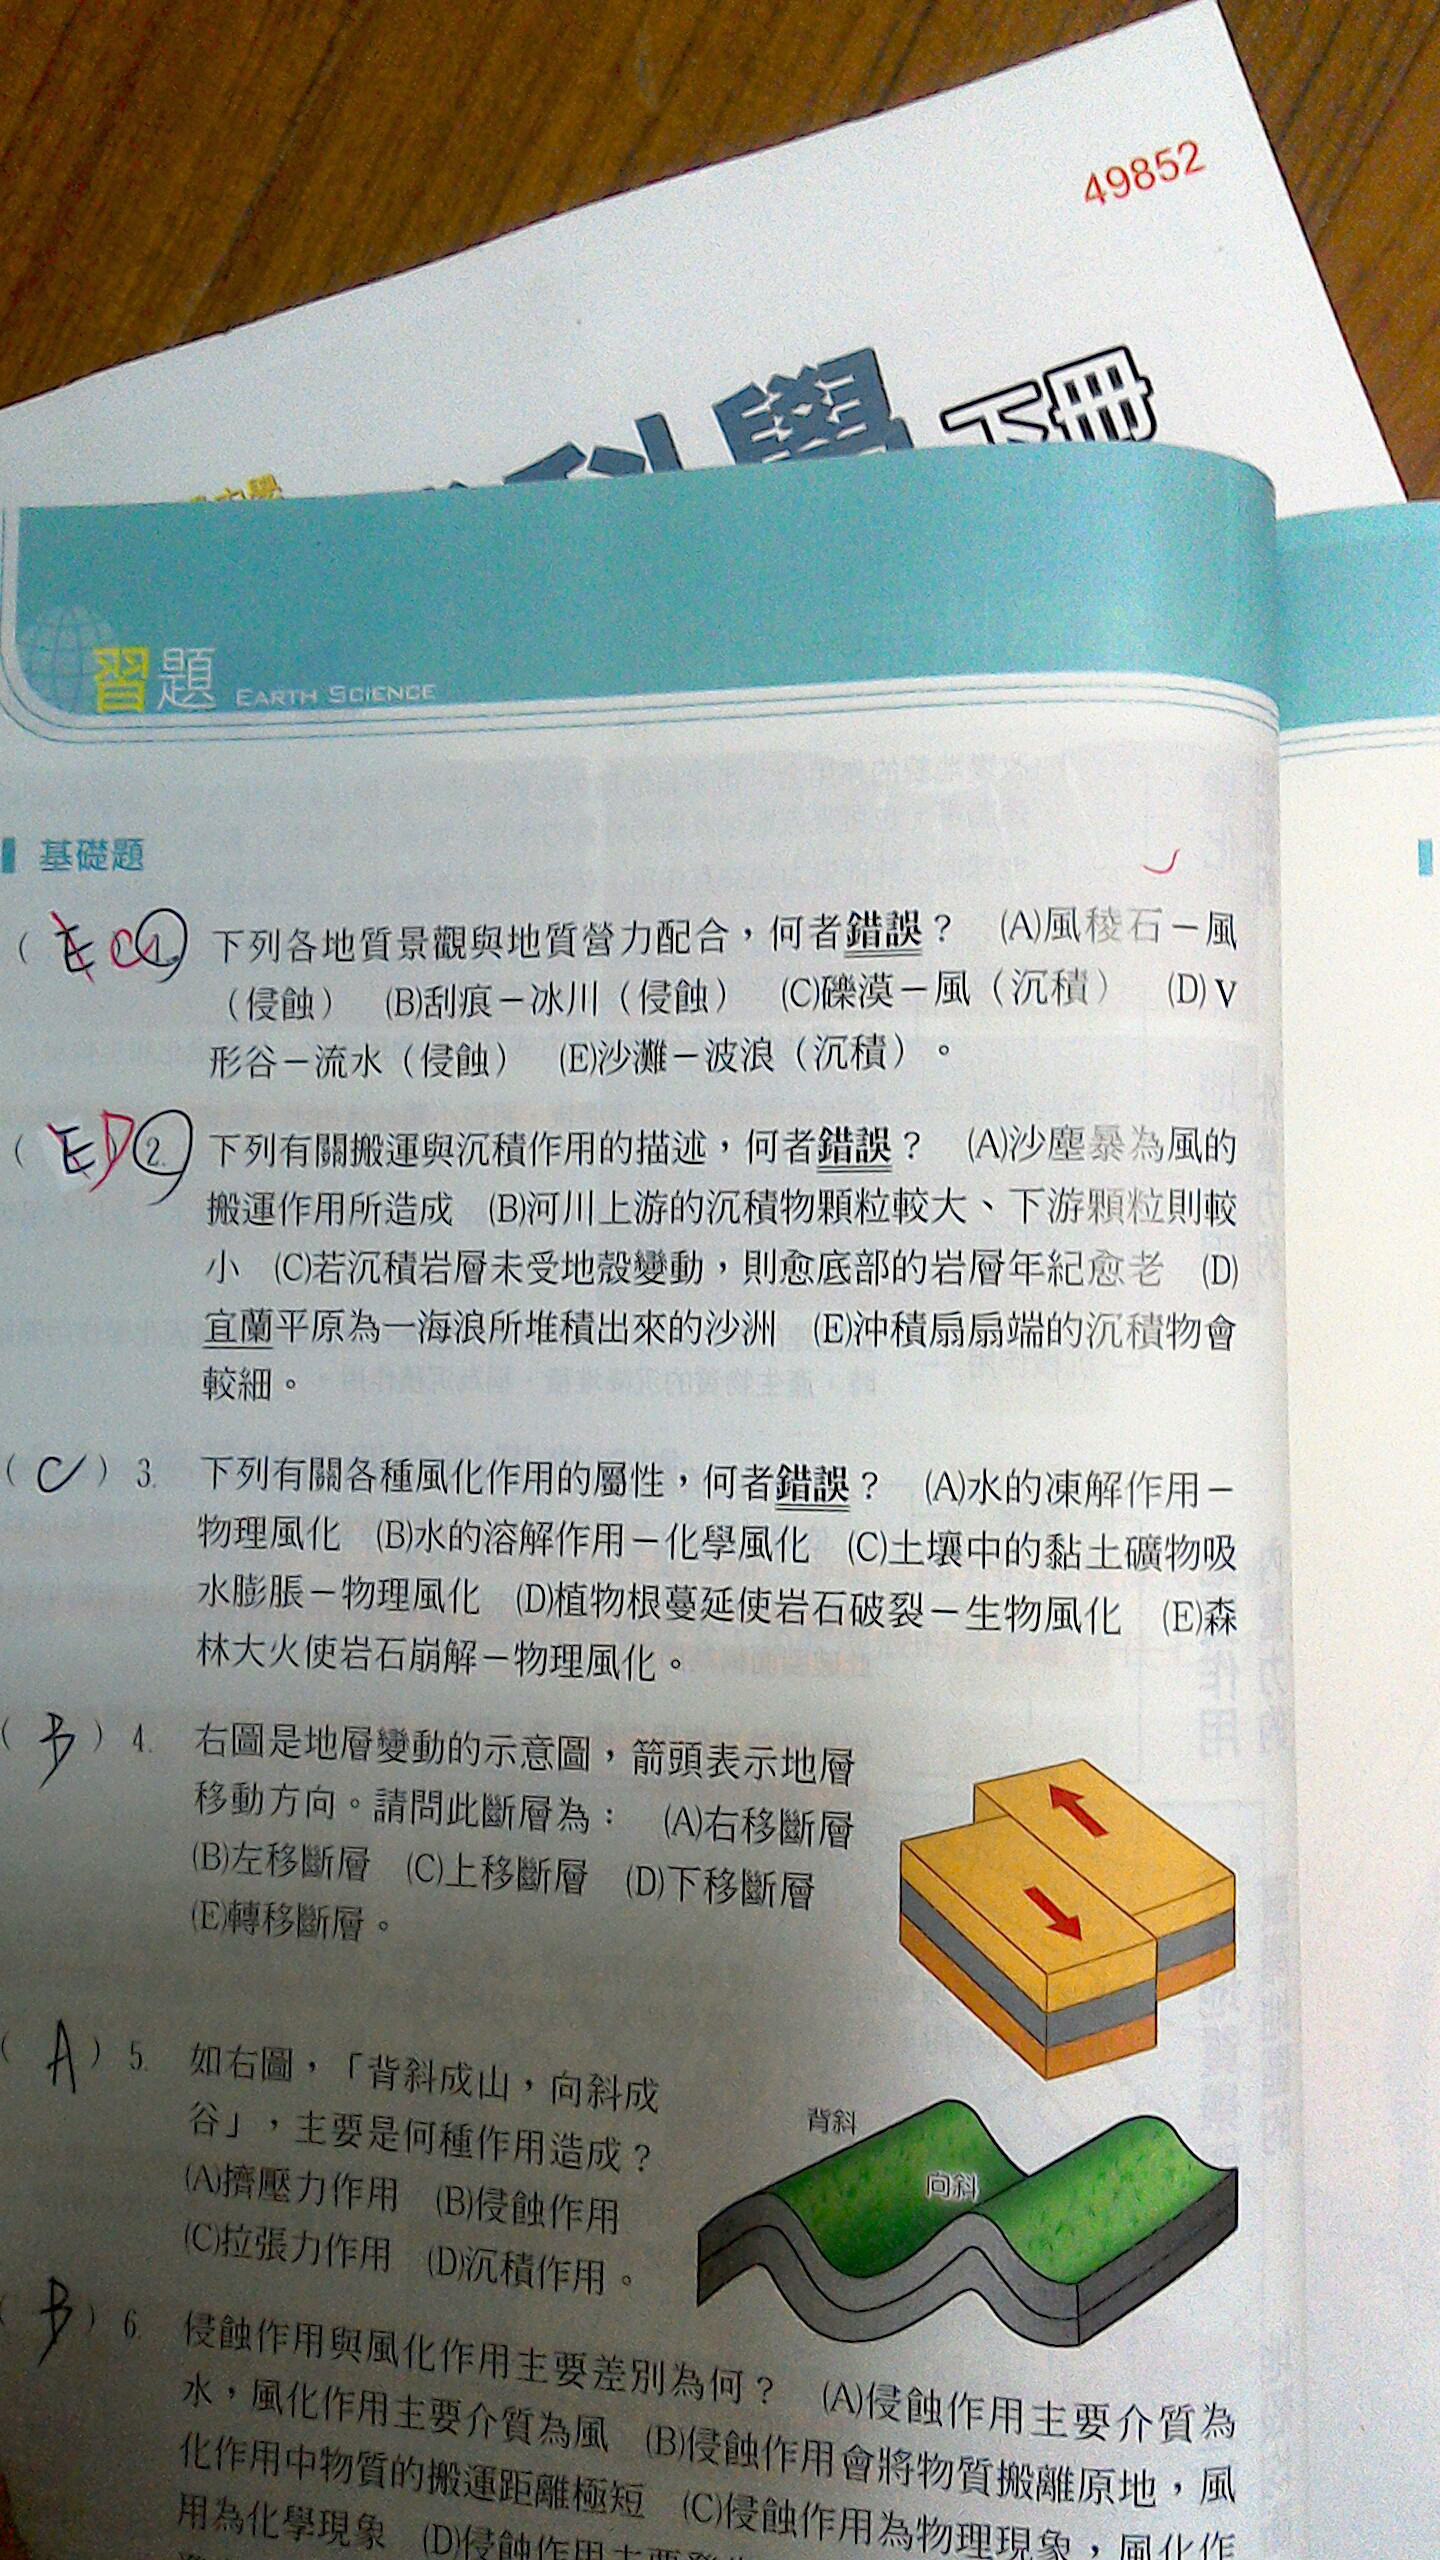 49852
科學 下冊
習題 EARTH SCIENCE
基礎題
( E C 1. 下列各地質景觀與地質營力配合，何者錯誤？ (A)風稜石－風
（侵蝕） (B)刮痕－冰川（侵蝕） (C)礫漠－風（沉積） (D) V
形谷－流水（侵蝕） (E)沙灘－波浪（沉積）。
( E D 2. 下列有關搬運與沉積作用的描述，何者錯誤？ (A)沙塵暴為風的
搬運作用所造成 (B)河川上游的沉積物顆粒較大、下游顆粒則較
小 (C)若沉積岩層未受地殼變動，則愈底部的岩層年紀愈老 (D)
宜蘭平原為一海浪所堆積出來的沙洲 (E)沖積扇扇端的沉積物會
較細。
( C ) 3. 下列有關各種風化作用的屬性，何者錯誤？ (A)水的凍解作用－
物理風化 (B)水的溶解作用－化學風化 (C)土壤中的黏土礦物吸
水膨脹－物理風化 (D)植物根蔓延使岩石破裂－生物風化 (E)森
林大火使岩石崩解－物理風化。
( B ) 4. 右圖是地層變動的示意圖，箭頭表示地層
移動方向。請問此斷層為： (A)右移斷層
(B)左移斷層 (C)上移斷層 (D)下移斷層
(E)轉移斷層。
( A ) 5. 如右圖，「背斜成山，向斜成
谷」，主要是何種作用造成？
(A)擠壓力作用 (B)侵蝕作用
(C)拉張力作用 (D)沉積作用。
背斜
向斜
( B ) 6. 侵蝕作用與風化作用主要差別為何？ (A)侵蝕作用主要介質為
水，風化作用主要介質為風 (B)侵蝕作用會將物質搬離原地，風
化作用中物質的搬運距離極短 (C)侵蝕作用為物理現象，風化作
用為化學現象 (D)侵蝕作用主要發生